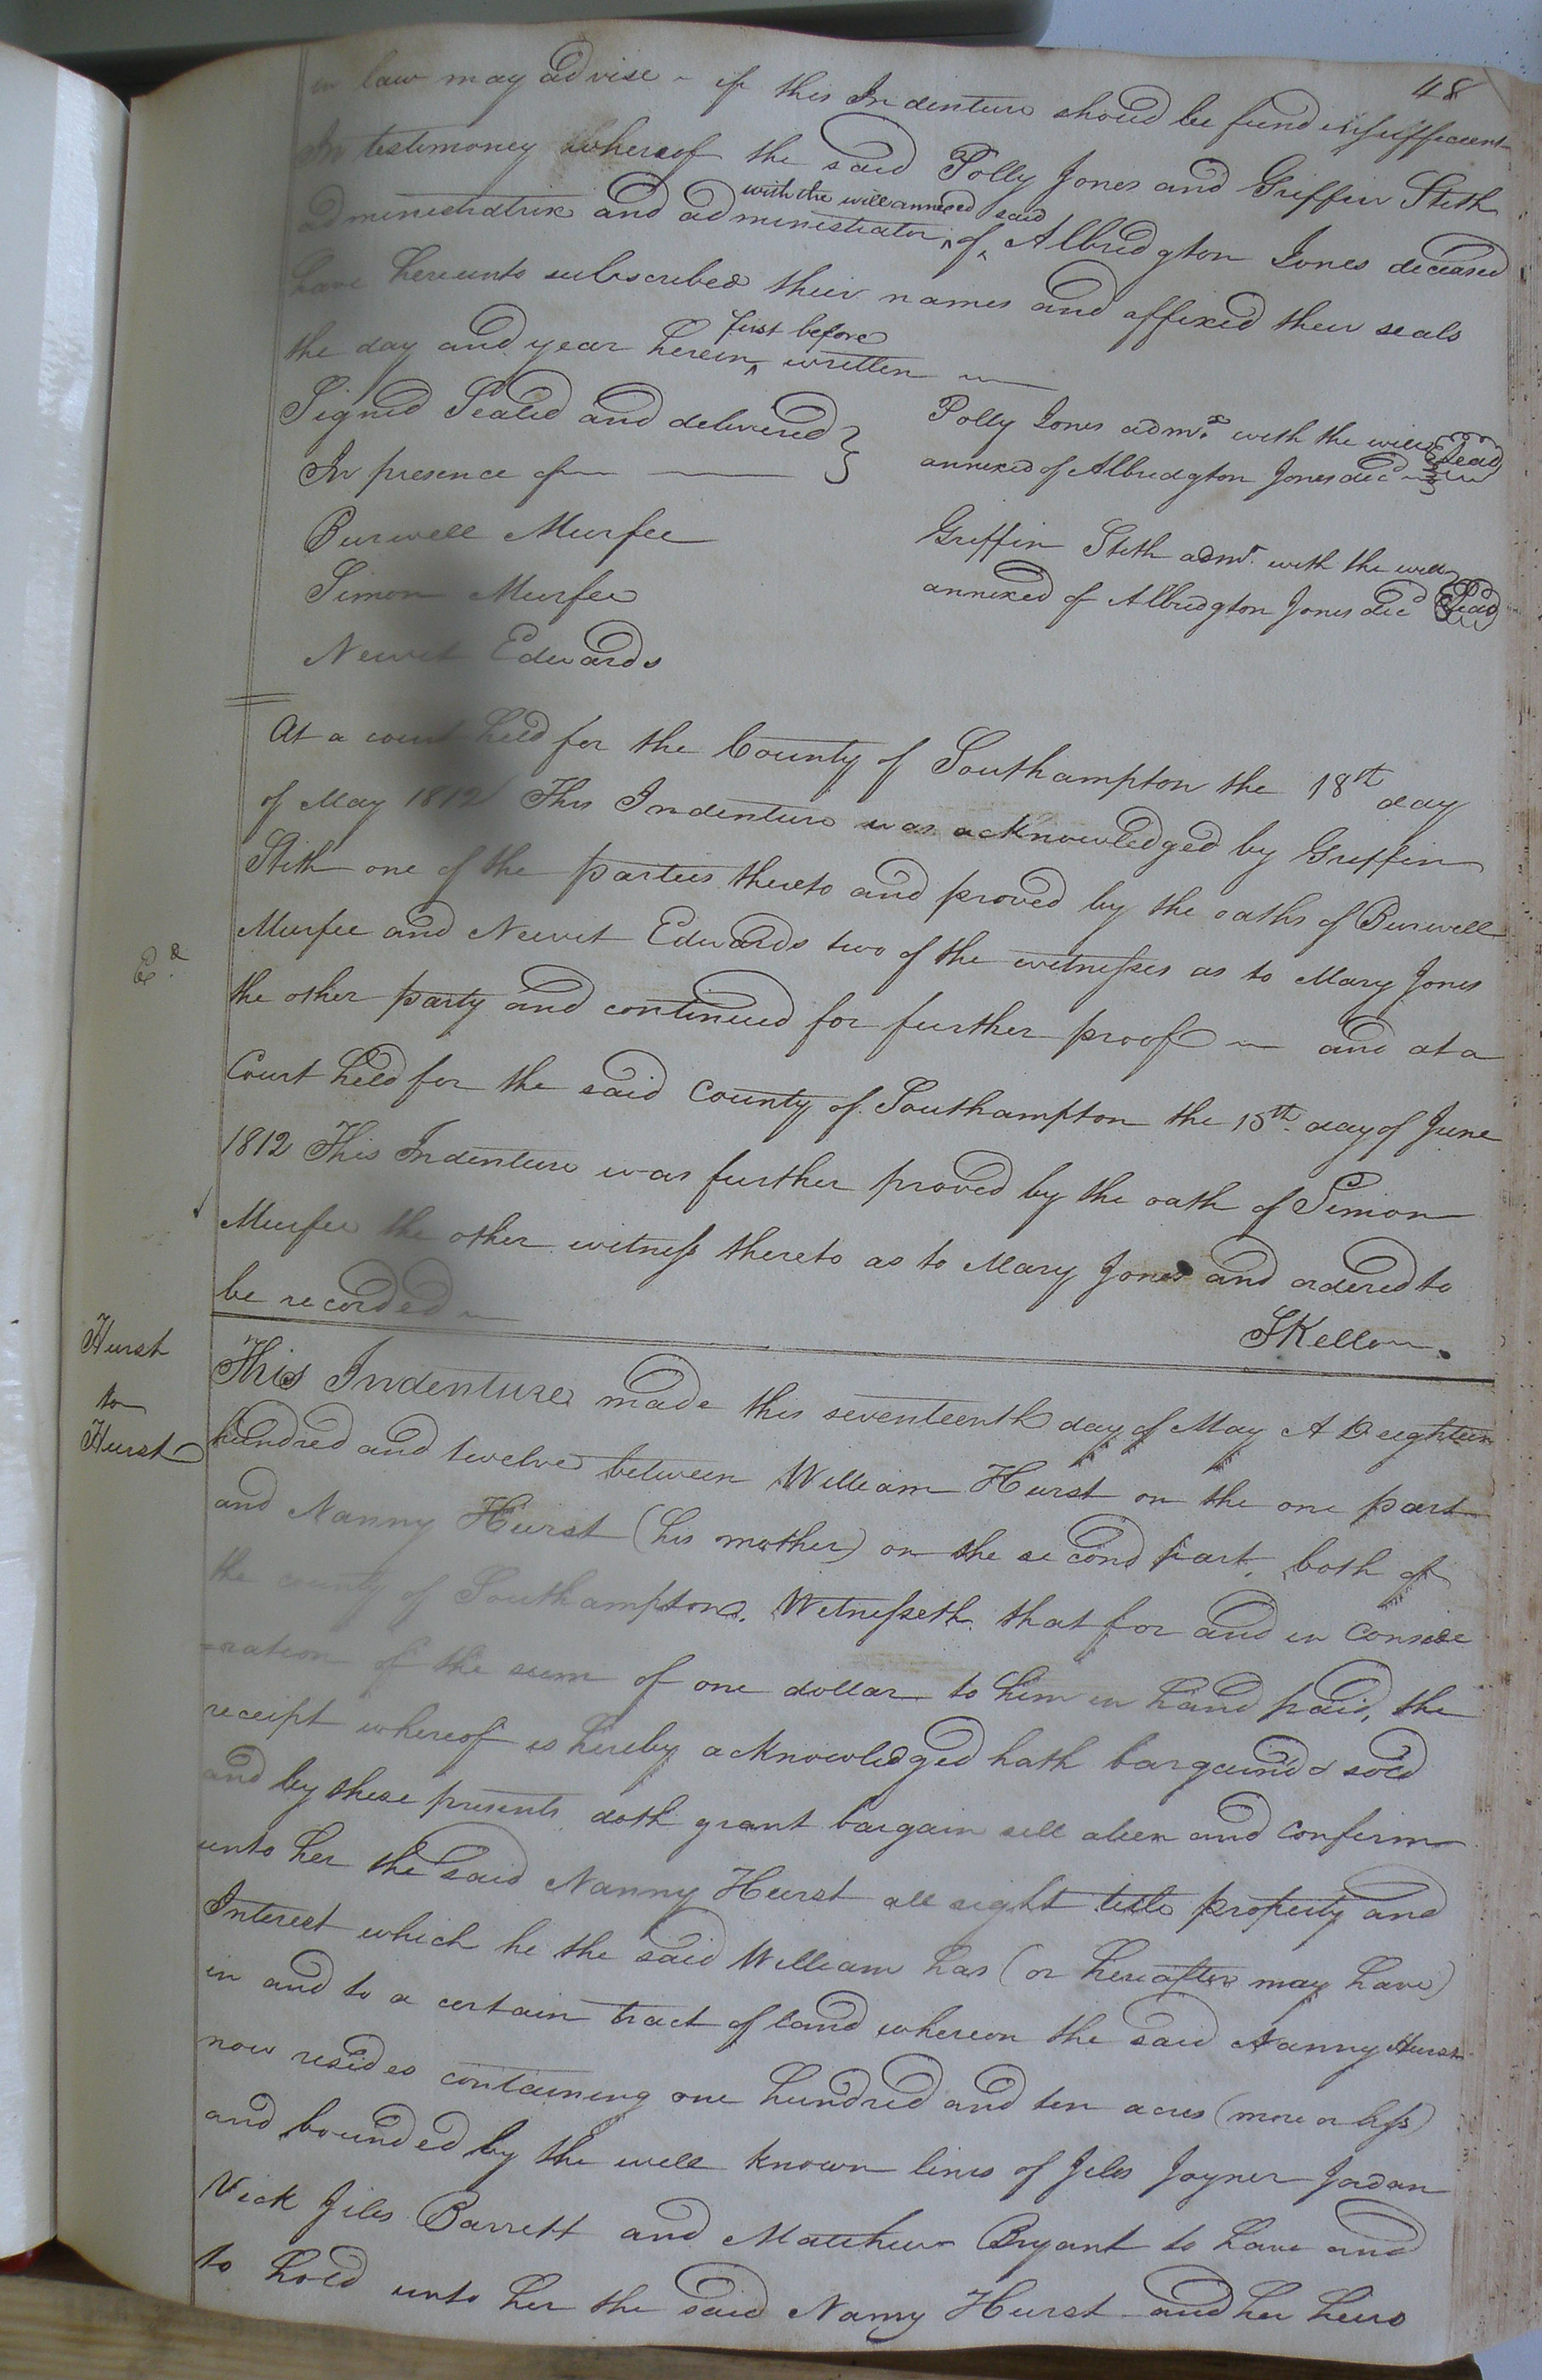 48
in law may advise - if this Indenture should be fund insuffecient
In testimoney whereof the said Polly Jones and Griffin Stith
administratrix and administrator with the will annexed of said Albridgton Jones deceased
have hereunto subscribed their names and affixed their seals
the day and year herein first before written
Signed Sealed and delivered
In presence of
Polly Jones admx. with the will
annexed of Albridgton Jones decd Seal
Burwell Murfee
Simon Murfee
Newit Edwards
Griffin Stith admr. with the will
annexed of Albridgton Jones decd Seal
At a court held for the County of Southampton the 18th day
of May 1812 This Indenture was acknowledged by Griffin
Stith one of the parties thereto and proved by the oaths of Burwell
Murfee and Newit Edwards two of the witnesses as to Mary Jones
Ed.
the other party and continued for further proof and at a
Court held for the said County of Southampton the 15th. day of June
1812 This Indenture was further proved by the oath of Simon
Murfee the other witness thereto as to Mary Jones and ordered to
be recorded
SKello
Hurst
to
Hurst
This Indenture made this seventeenth day of May A D eighteen
hundred and twelve between William Hurst on the one part
and Nanny Hurst (his mother) on the second part, both of
the county of Southampton. Witnesseth that for and in conside
=ration of the sum of one dollar to him in hand paid, the
receipt whereof is hereby acknowledged hath bargain'd & sold
and by these presents doth grant bargain sell alien and confirm
unto her the said Nanny Hurst all right title property and
Interest which he the said William has (or hereafter may have)
in and to a certain tract of land whereon the said Nanny Hurst
now resides containing one hundred and ten acres (more or less)
and bounded by the well known lines of Jiles Joyner Jordan
Vick Jiles Barrett and Matthew Bryant to have and
to hold unto her the said Nanny Hurst and her heirs